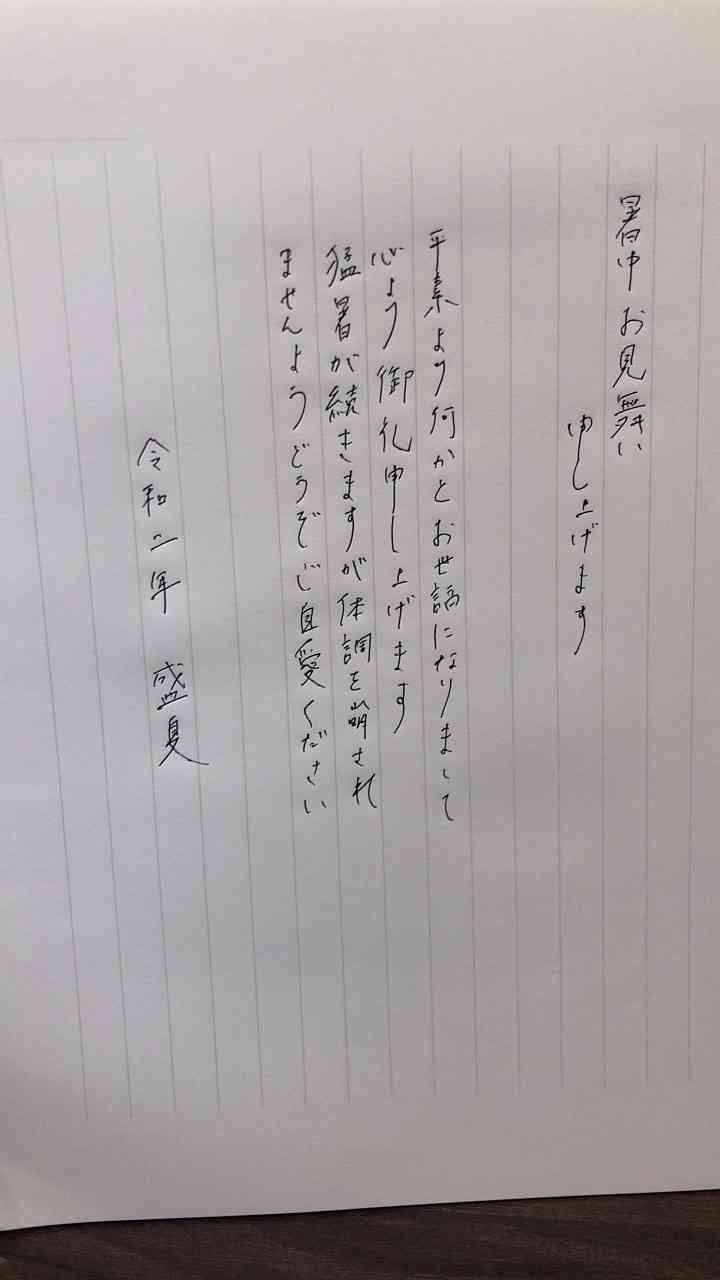 暑中お見舞い
申し上げます
平素より何かとお世話になりまして
心より御礼申し上げます
猛暑が続きますが体調を崩され
ませんようどうぞご自愛ください
令和二年 盛夏